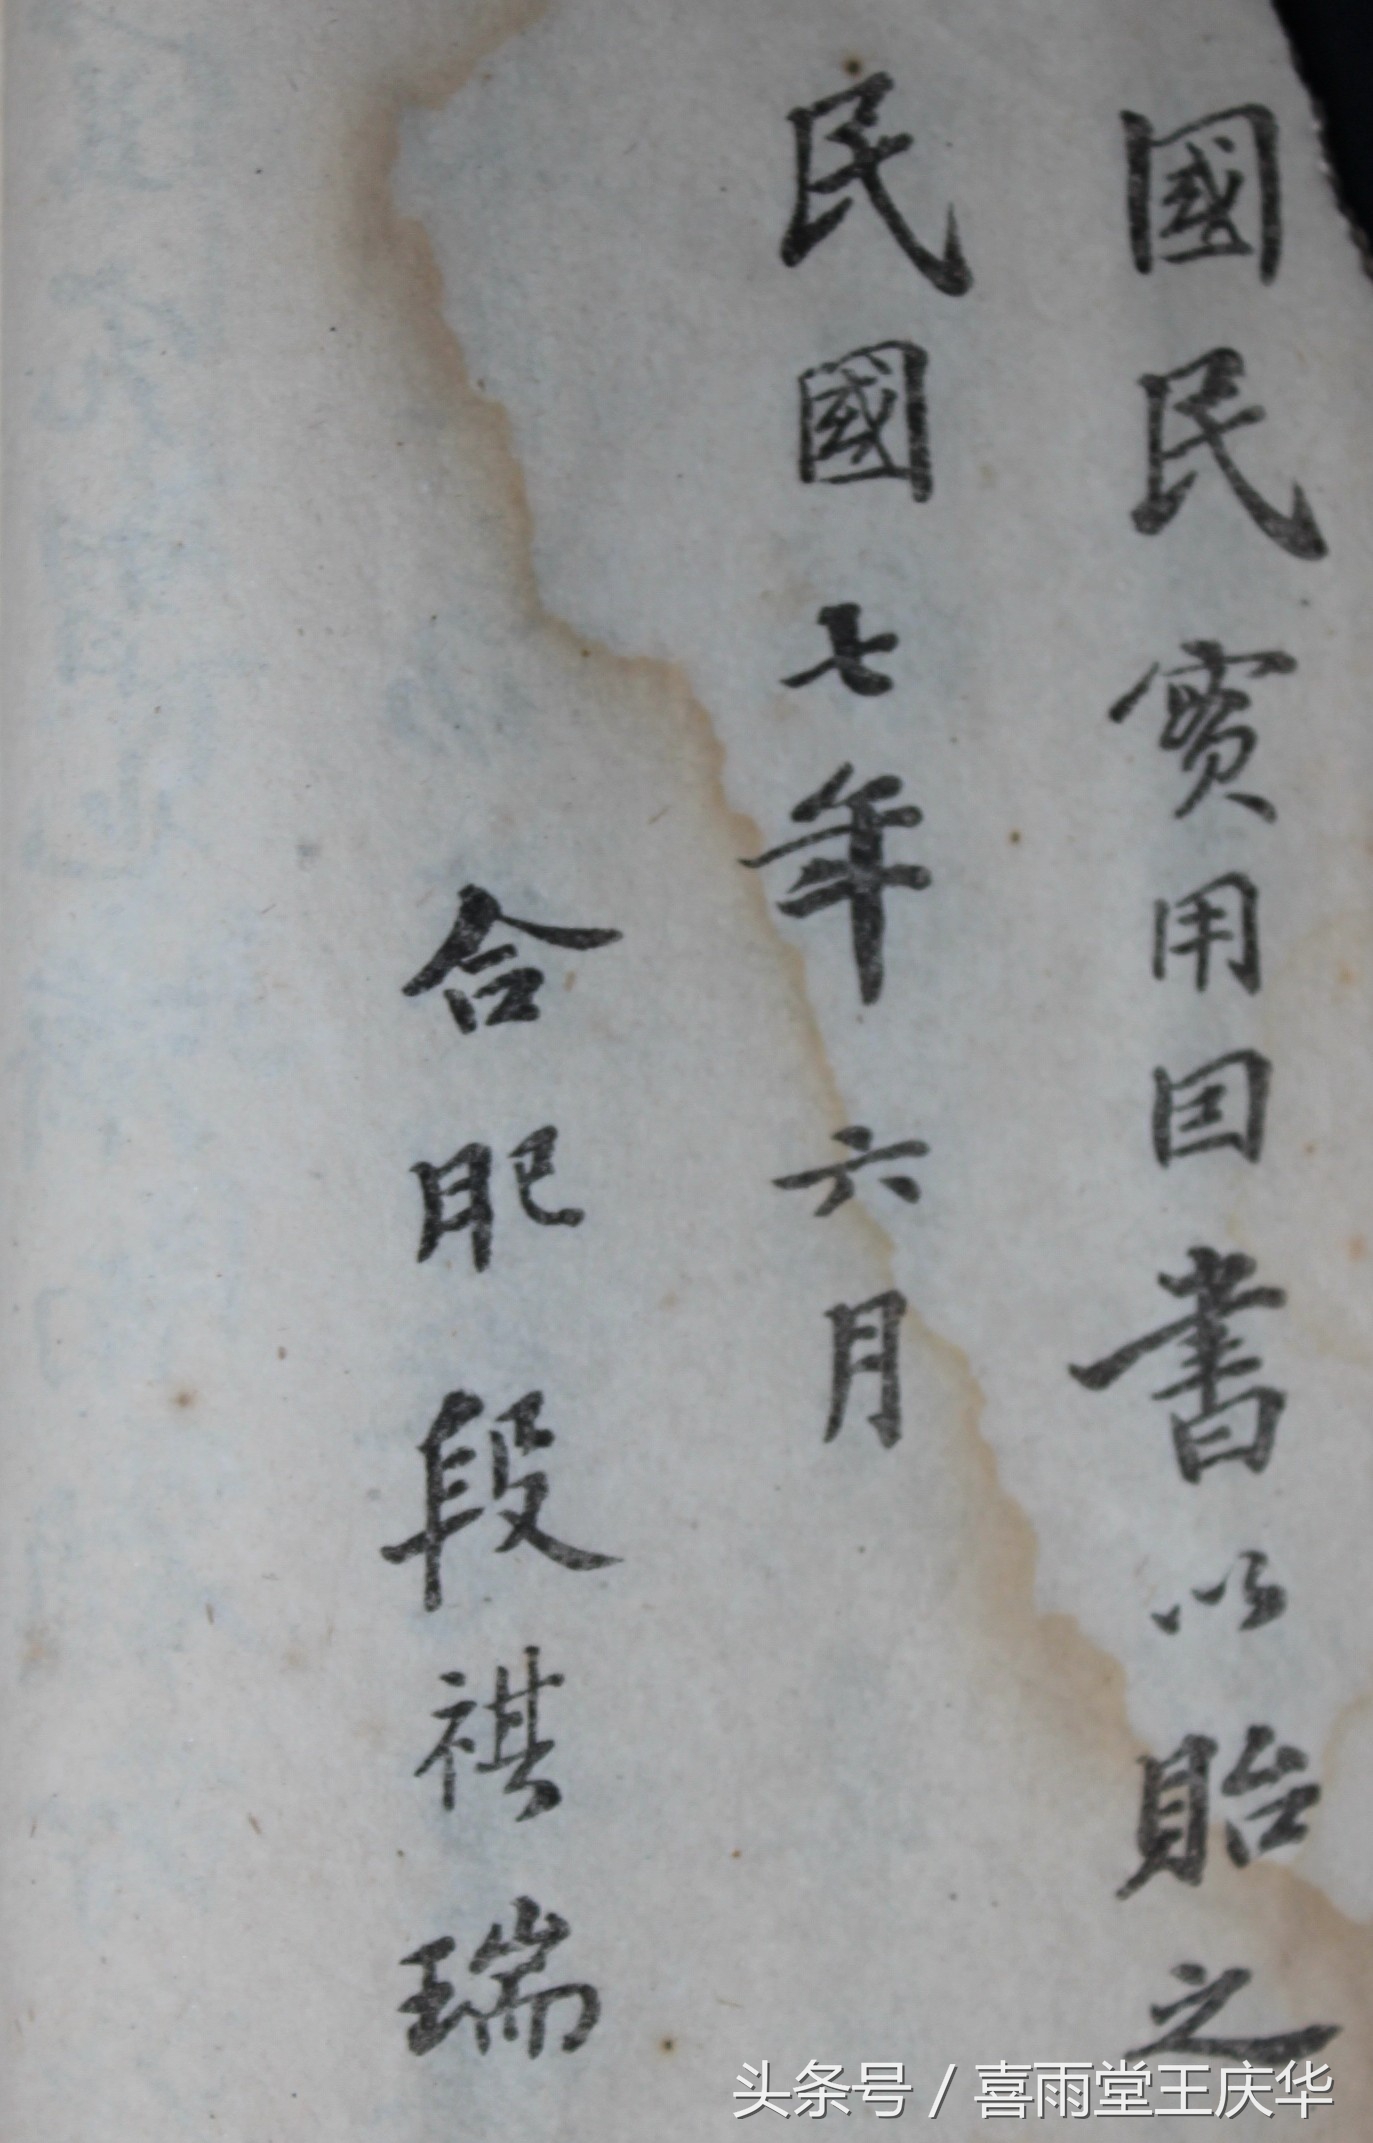 國民實用因書以貽之
民國七年六月
合肥段祺瑞
头条号 / 喜雨堂王庆华